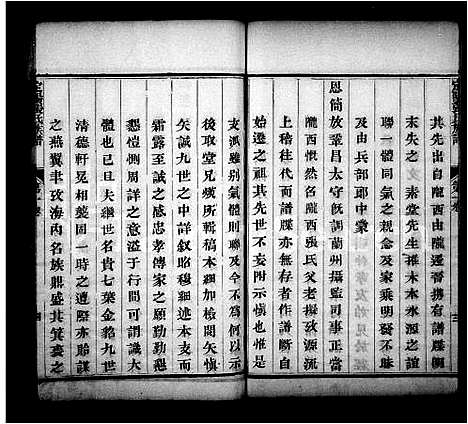 其先出自隴西由隴遷晉舊有譜牒爛
末失之素堂先生推木本水源之誼
以一體同氣之親念及家乘明發不昧
及由兵部郎中蒙
恩簡放鞏昌太守既調蘭州攝監司事正當
隴西慨然名隴西張氏父老擬致源流
上稽往代諸譜牒亦無存者作譜斷自
始遷之祖上其先世不妄附示嚴也
支派雖別氣體則聯及今不為何以示
後取堂兄燠所輯稿本細加檢閱矢慎
矢誠九世之中詳叙昭穆細述本支而
霜露至誠之感忠孝傳家之願勤勤懇
懇愷惻周詳之意溢于行間可謂識大
體也已且夫繼世名貴七葉金貂九世
清德軒冕相襲固一時之遭際亦貽謀
之燕翼聿孜海內名族鼎盛其箕裘之